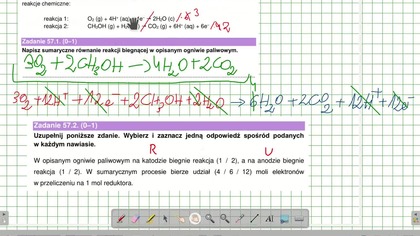 reakcje chemiczne:
reakcja 1: O₂ (g) + 4H⁺ (aq) + e⁻ → 2H₂O (c) /·3
reakcja 2: CH₃OH (g) + H₂O → CO₂ (g) + 6H⁺ (aq) + 6e⁻ /·2
Zadanie 57.1. (0–1)
Napisz sumaryczne równanie reakcji biegnącej w opisanym ogniwie paliwowym.
3O₂ + 2CH₃OH → 4H₂O + 2CO₂
3O₂ + 12H⁺ + 12e⁻ + 2CH₃OH + 2H₂O → 6H₂O + 2CO₂ + 12H⁺ + 12e⁻
Zadanie 57.2. (0–1)
Uzupełnij poniższe zdanie. Wybierz i zaznacz jedną odpowiedź spośród podanych
w każdym nawiasie.
R U
W opisanym ogniwie paliwowym na katodzie biegnie reakcja (1 / 2), a na anodzie biegnie
reakcja (1 / 2). W sumarycznym procesie bierze udział (4 / 6 / 12) moli elektronów
w przeliczeniu na 1 mol reduktora.